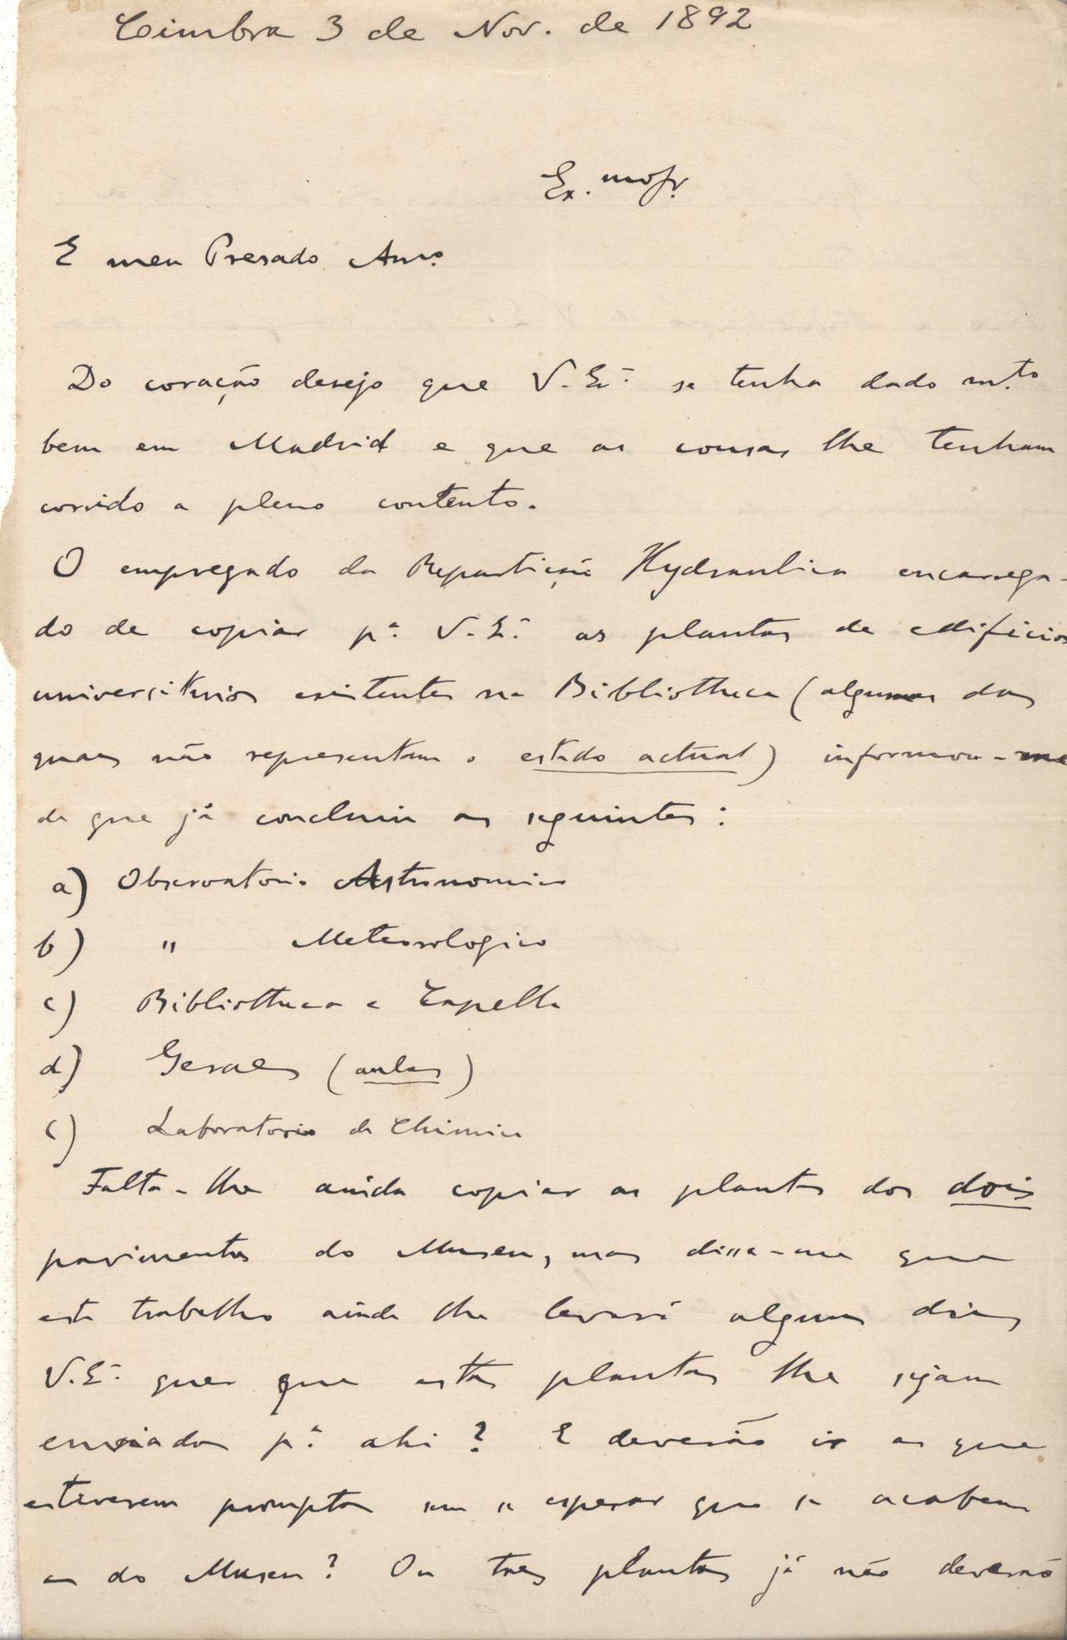 Coimbra 3 de Nov. de 1892
Ex.mo Sr.
E meu Presado Am.o
Do coração desejo que V. Ex.ª se tenha dado m.to
bem em Madrid e que as cousas lhe tenham
corrido a pleno contento.
O empregado da Repartição Hydraulica encarrega-
do de copiar p.ª V. Ex.ª as plantas de edificios
universitarios existentes na Bibliotheca (algumas das
quaes não representam o estado actual) informou-me
de que já concluiu as seguintes:
a) Observatorio Astronomico
b) " Meteorologico
c) Bibliotheca e Capella
d) Geraes (aulas)
e) Laboratorio de Chimica
Falta-lhe ainda copiar as plantas dos dois
pavimentos do Museu, mas disse-me que
este trabalho ainda lhe levará alguns dias
V. Ex.ª quer que estas plantas lhe sejam
enviadas p.ª ahi? E deverão ir as que
estiverem promptas sem se esperar que se acabem
as do Museu? Ou taes plantas já não deverão